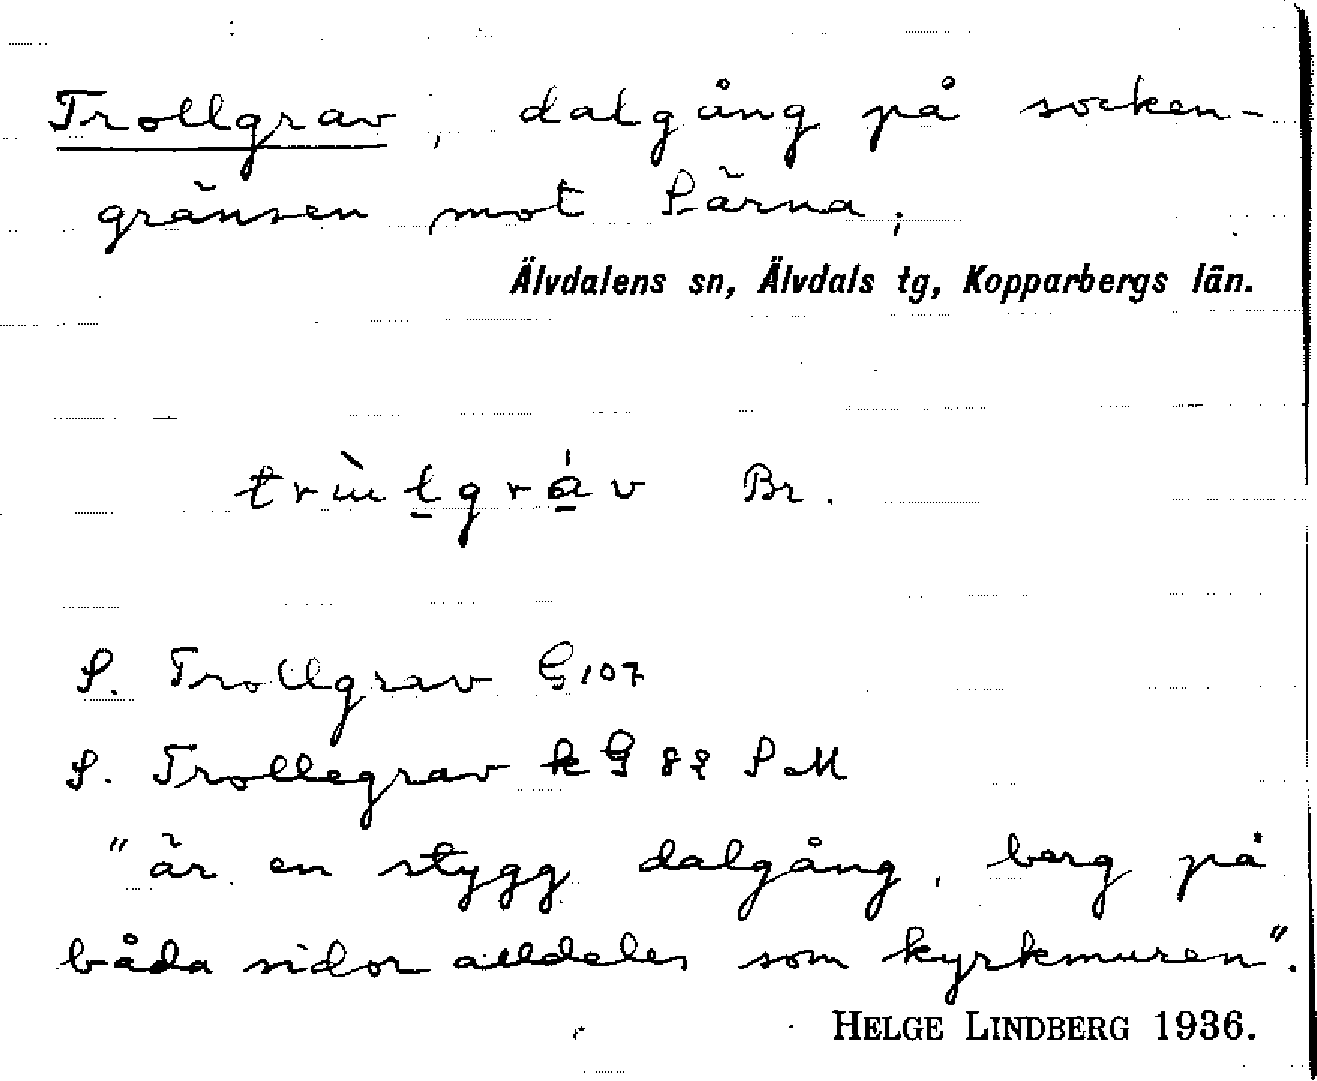 Trollgrav, dalgång på socken-
gränsen mot Särna.
Älvdalens sn, Älvdals tg, Kopparbergs län.
Br.
S. Trollgrav G 107
S. Trollegrav k G 82 S M
"är en stygg dalgång, berg på
båda sidor alldeles som kyrkmuren".
HELGE LINDBERG 1936.